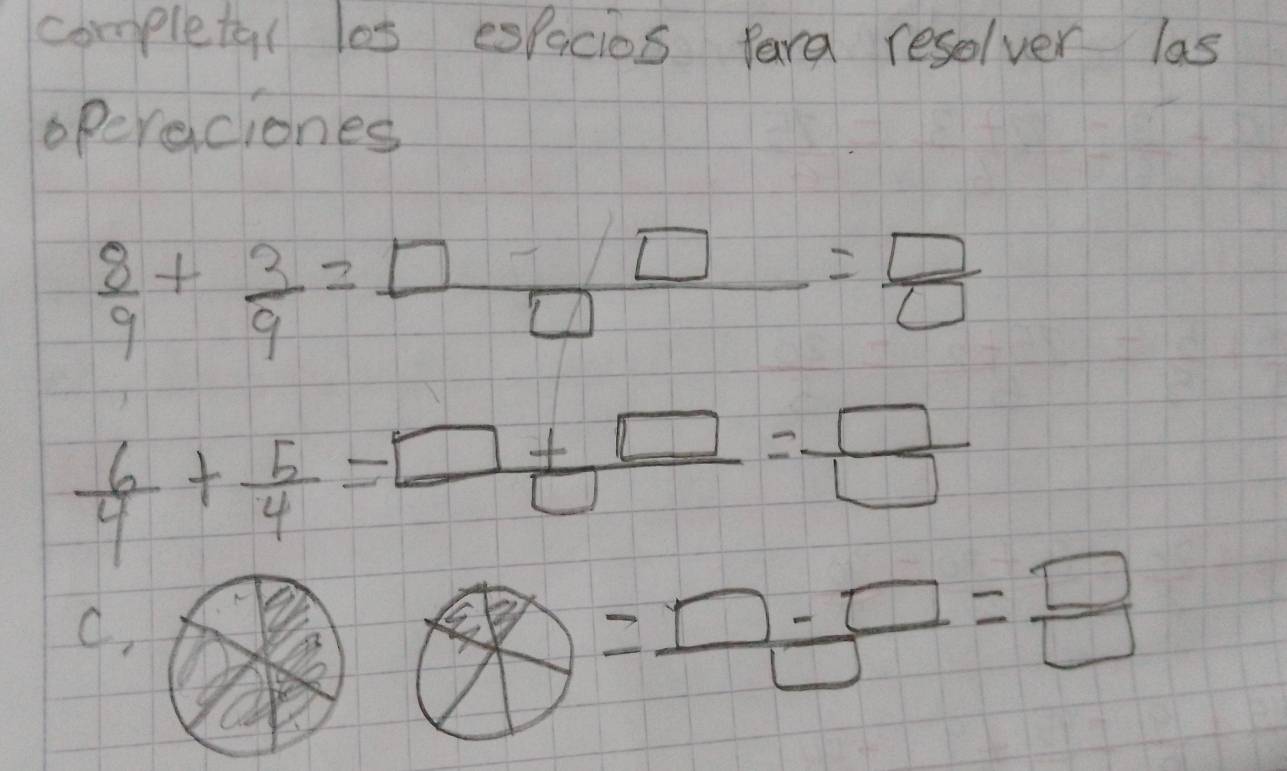 completar los espacios para resolver las
operaciones
8/9 + 3/9 = □ - □ / □ = □/□
6/4 + 5/4 = □ + □ / □ = □/□
c. = □ - □ / □ = □/□